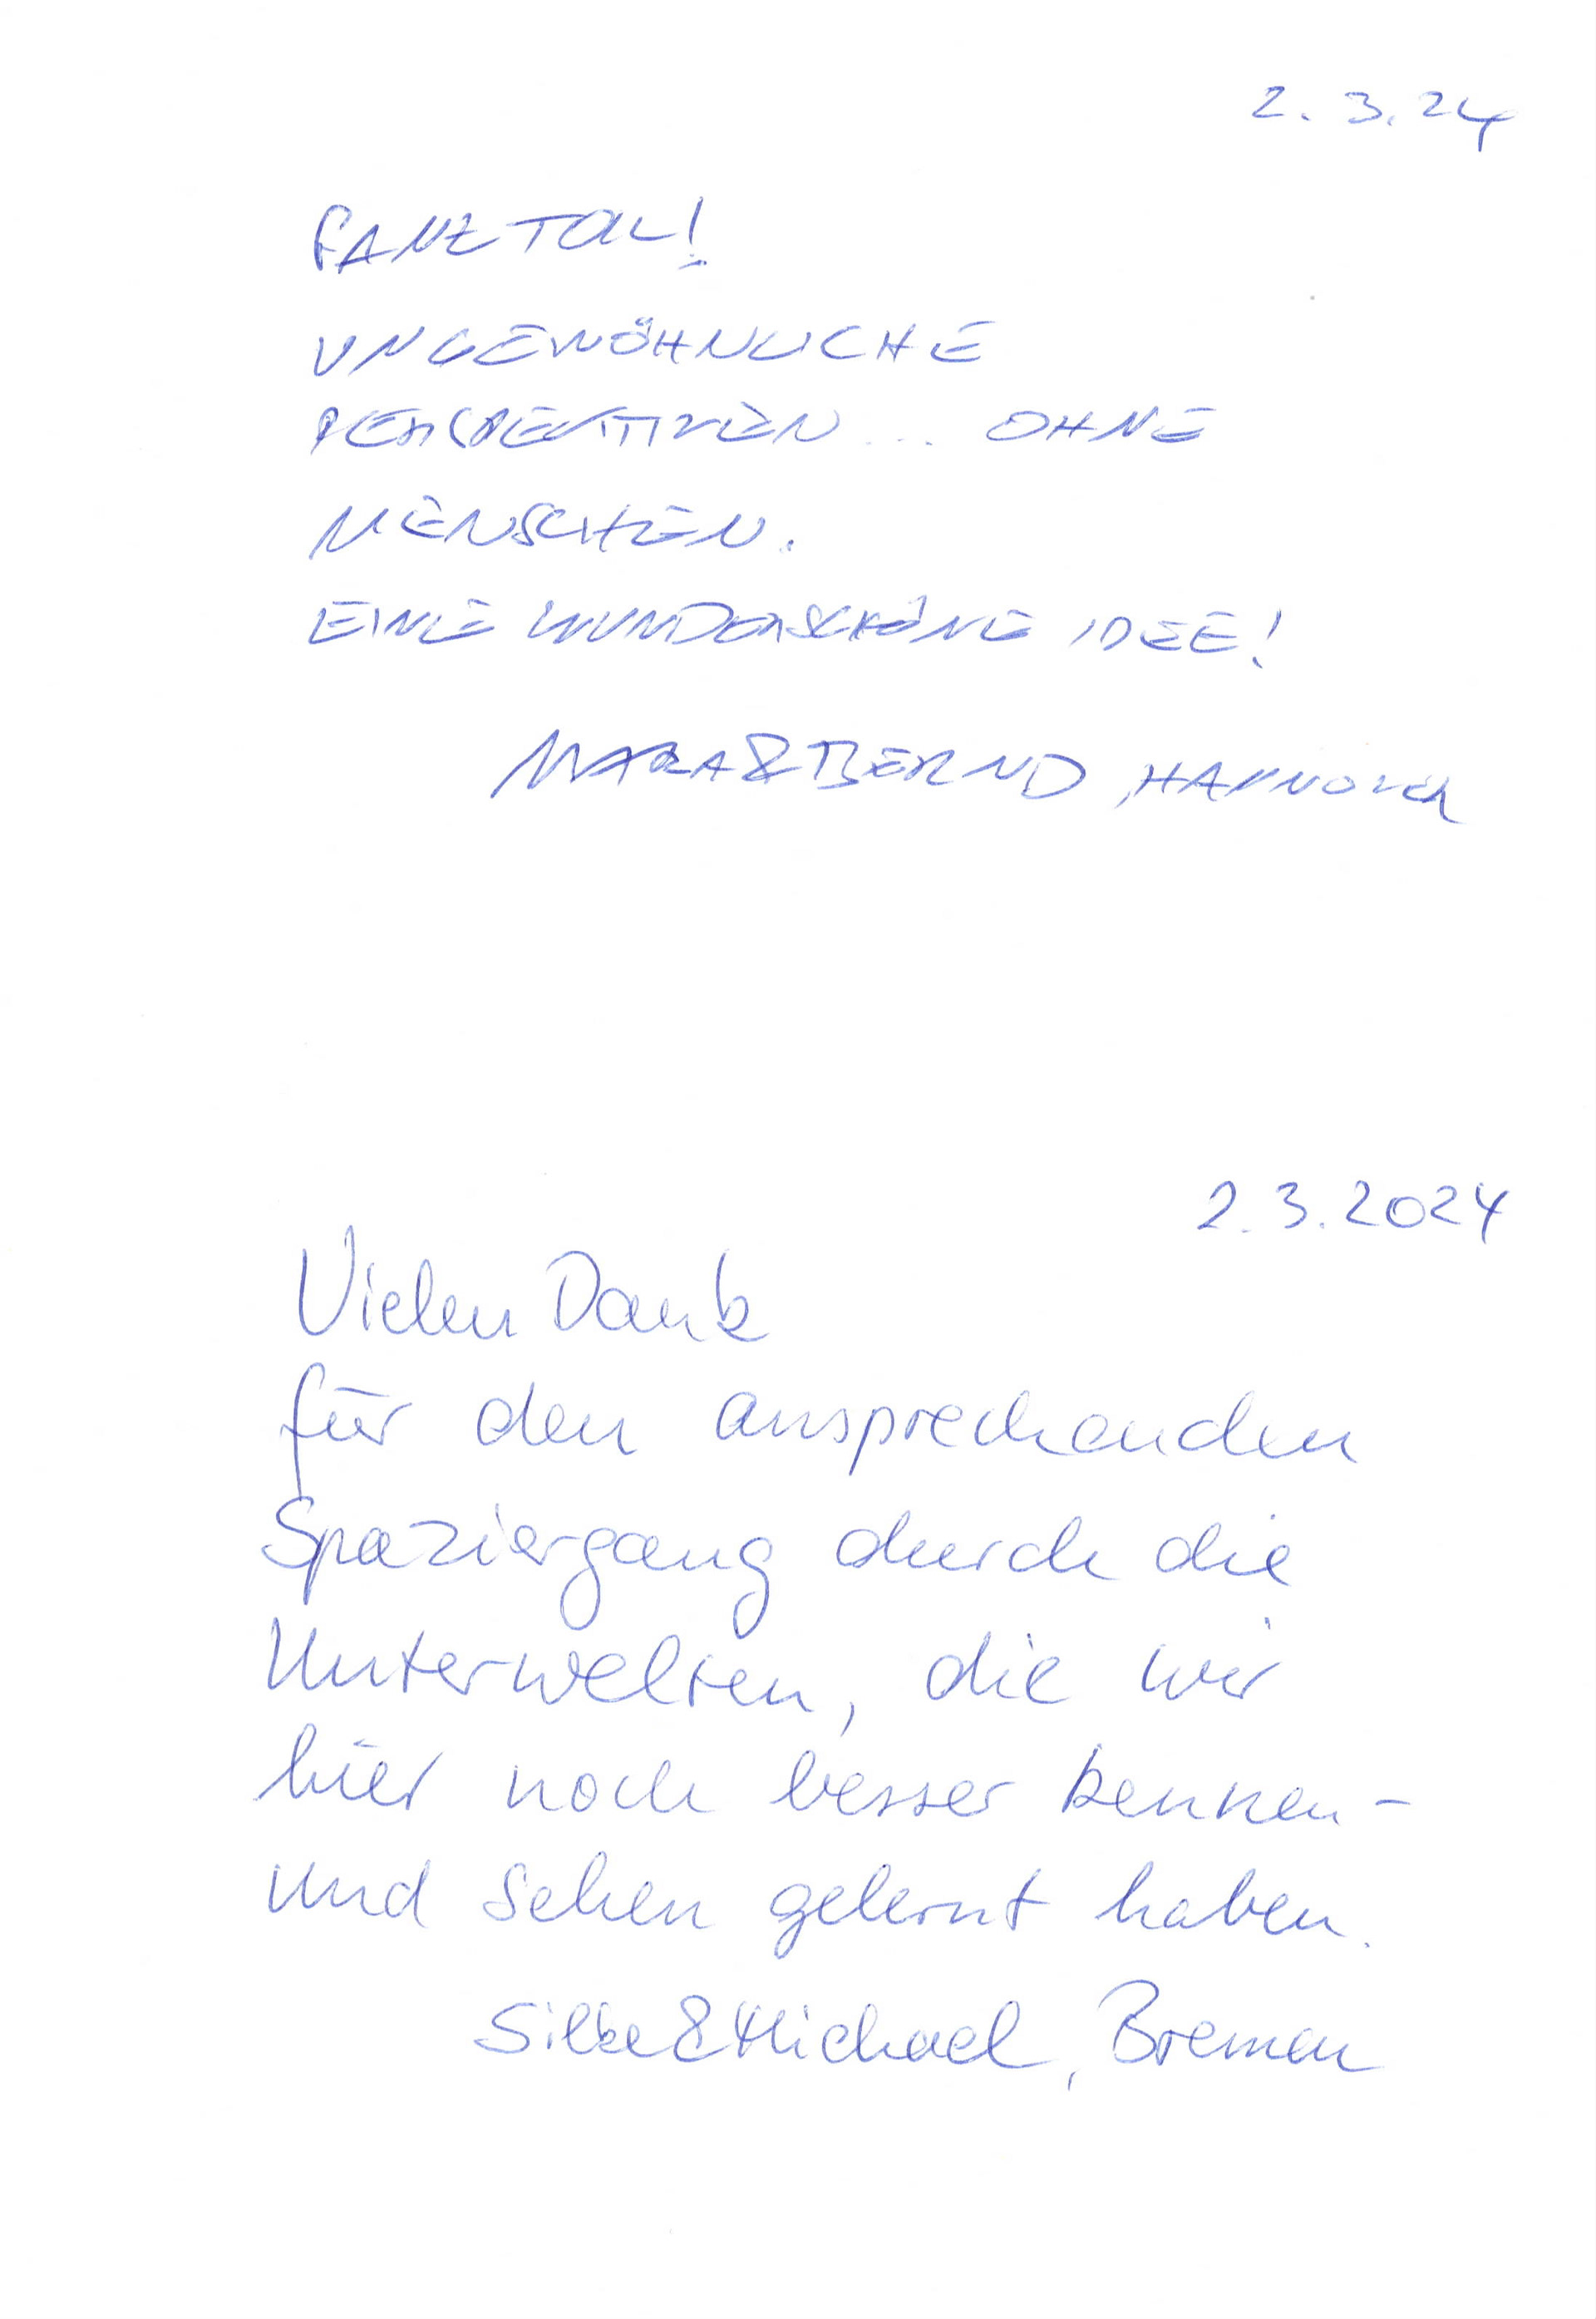 2.3.24
GANZ TOLL!
UNGEWÖHNLICHE
PERSPEKTIVEN... OHNE
MENSCHEN.
EINE WUNDERSCHÖNE IDEE!
MARA & BERND, HANNOVER
2.3.2024
Vielen Dank
für den ansprechenden
Spaziergang durch die
Unterwelten, die wir
hier noch besser kennen-
und sehen gelernt haben.
Silke & Michael, Bremen